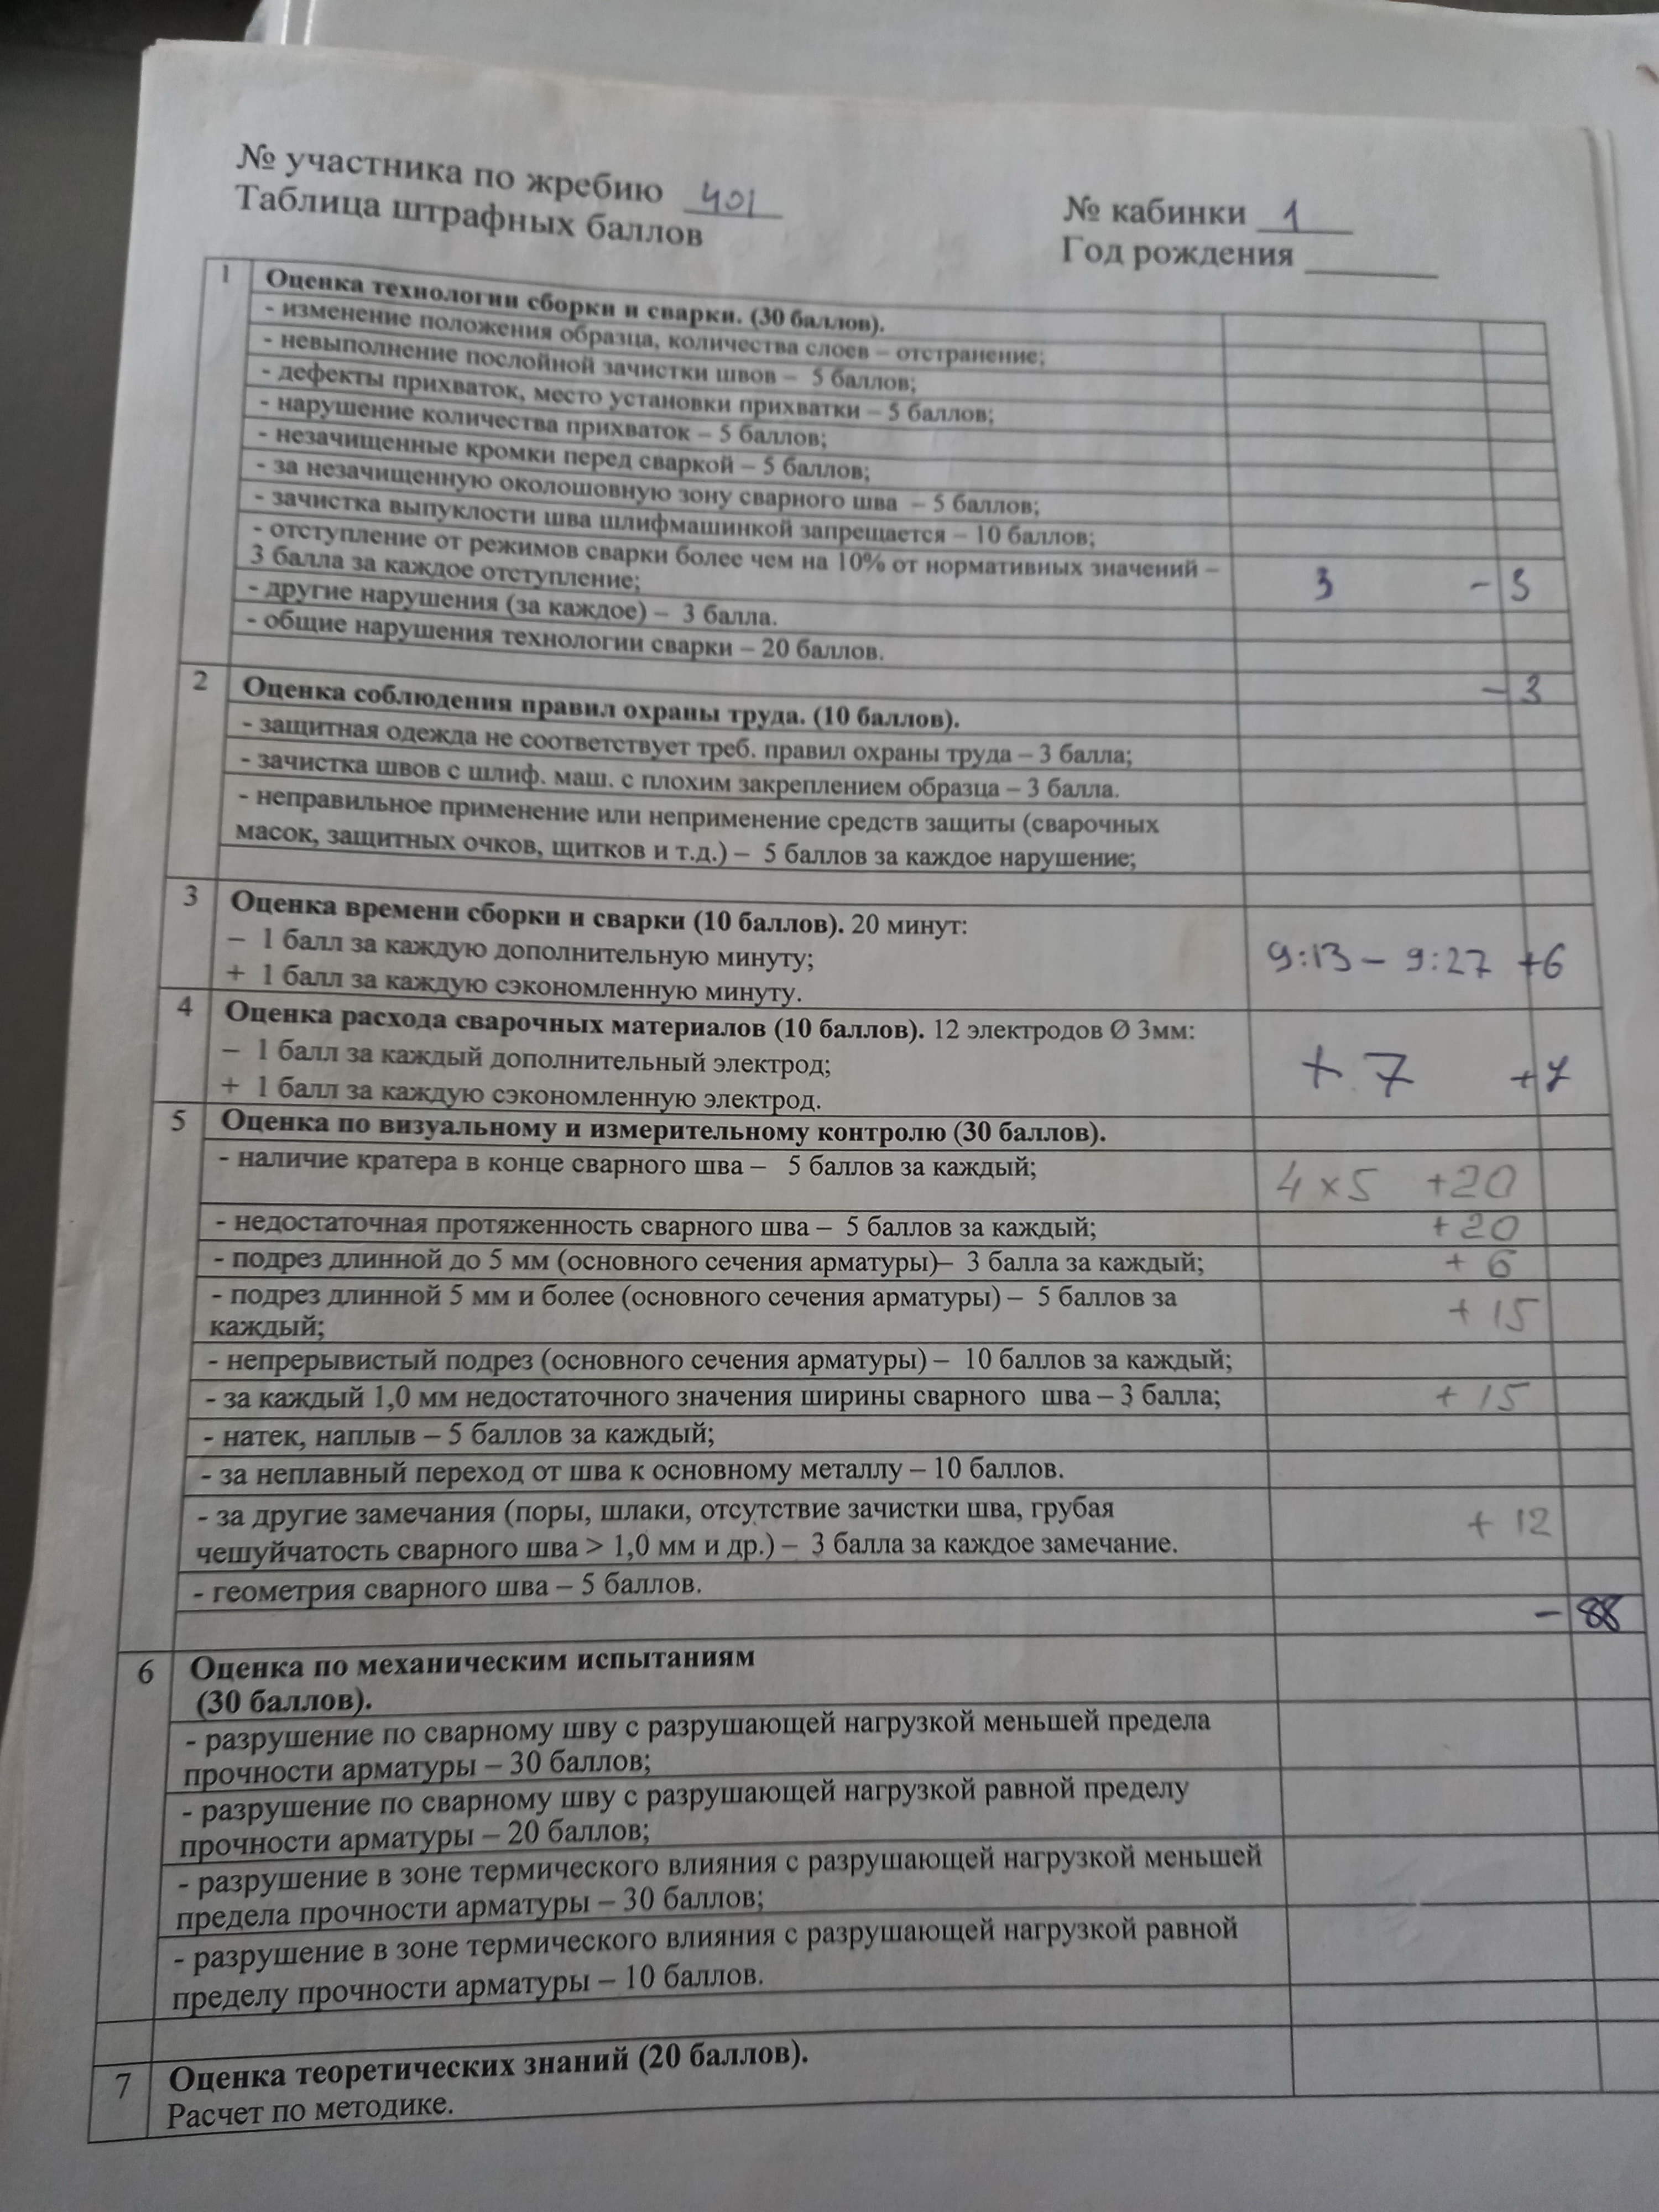 № участника по жребию 401
Таблица штрафных баллов
№ кабинки 1
Год рождения
1 Оценка технологии сборки и сварки. (30 баллов).
- изменение положения образца, количества слоев – отстранение;
- невыполнение послойной зачистки швов – 5 баллов;
- дефекты прихваток, место установки прихватки – 5 баллов;
- нарушение количества прихваток – 5 баллов;
- незачищенные кромки перед сваркой – 5 баллов;
- за незачищенную околошовную зону сварного шва – 5 баллов;
- зачистка выпуклости шва шлифмашинкой запрещается – 10 баллов;
- отступление от режимов сварки более чем на 10% от нормативных значений –
3 балла за каждое отступление; 3 - 3
- другие нарушения (за каждое) – 3 балла.
- общие нарушения технологии сварки – 20 баллов.
- 3
2 Оценка соблюдения правил охраны труда. (10 баллов).
- защитная одежда не соответствует треб. правил охраны труда – 3 балла;
- зачистка швов с шлиф. маш. с плохим закреплением образца – 3 балла.
- неправильное применение или неприменение средств защиты (сварочных
масок, защитных очков, щитков и т.д.) – 5 баллов за каждое нарушение;
3 Оценка времени сборки и сварки (10 баллов). 20 минут:
– 1 балл за каждую дополнительную минуту; 9:13 – 9:27 +6
+ 1 балл за каждую сэкономленную минуту.
4 Оценка расхода сварочных материалов (10 баллов). 12 электродов Ø 3мм:
– 1 балл за каждый дополнительный электрод; + 7 +7
+ 1 балл за каждую сэкономленную электрод.
5 Оценка по визуальному и измерительному контролю (30 баллов).
- наличие кратера в конце сварного шва – 5 баллов за каждый; 4 x 5 +20
- недостаточная протяженность сварного шва – 5 баллов за каждый; +20
- подрез длинной до 5 мм (основного сечения арматуры)– 3 балла за каждый; + 6
- подрез длинной 5 мм и более (основного сечения арматуры) – 5 баллов за
каждый; + 15
- непрерывистый подрез (основного сечения арматуры) – 10 баллов за каждый;
- за каждый 1,0 мм недостаточного значения ширины сварного шва – 3 балла; + 15
- натек, наплыв – 5 баллов за каждый;
- за неплавный переход от шва к основному металлу – 10 баллов.
- за другие замечания (поры, шлаки, отсутствие зачистки шва, грубая
чешуйчатость сварного шва > 1,0 мм и др.) – 3 балла за каждое замечание. + 12
- геометрия сварного шва – 5 баллов.
- 88
6 Оценка по механическим испытаниям
(30 баллов).
- разрушение по сварному шву с разрушающей нагрузкой меньшей предела
прочности арматуры – 30 баллов;
- разрушение по сварному шву с разрушающей нагрузкой равной пределу
прочности арматуры – 20 баллов;
- разрушение в зоне термического влияния с разрушающей нагрузкой меньшей
предела прочности арматуры – 30 баллов;
- разрушение в зоне термического влияния с разрушающей нагрузкой равной
пределу прочности арматуры – 10 баллов.
7 Оценка теоретических знаний (20 баллов).
Расчет по методике.